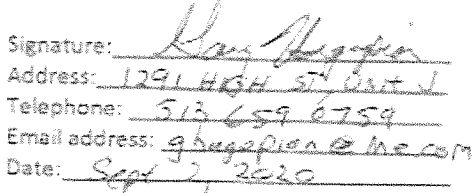 Signature: Gary Hagopian
Address: 1291 HIGH ST, UNIT J
Telephone: 513 659 6759
Email address: ghagopian@me.com
Date: Sept 2, 2020